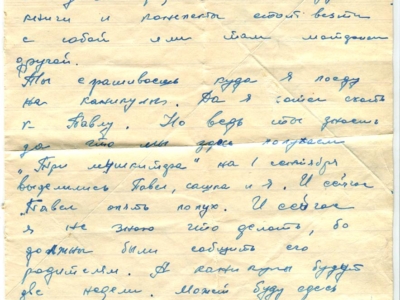 книги и конспекты стоит везти
с собой или там находим
другой.
Ты спрашиваешь куда я поеду
на каникулы. Да я хотел ехать
к Павлу. Но ведь ты знаешь
да что мы здесь
"Три мушкитёра" на 1 сентября
выделились Павел, сашка и я. И сейчас
Павел опять попух. И сейчас
я не знаю что делать, бо
должны были сообщить его
родителям. А каникулы будут
две недели. Может буду здесь